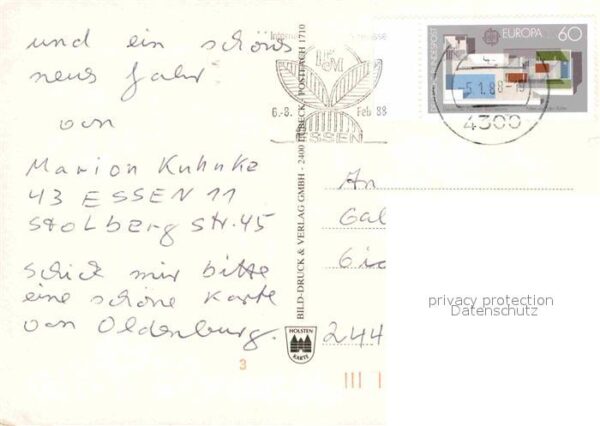 und ein schöns
neus Jahr
von
Marion Kuhnke
43 ESSEN 11
Stolberg Str. 45
Schick mir bitte
eine schöne Karte
von Oldenburg.
BILD-DRUCK & VERLAG GMBH - 2400 LÜBECK, POSTFACH 1710
HOLSTEN
KARTE
3
6.-8. Feb 88
ESSEN
DEUTSCHE BUNDESPOST
EUROPA 60
-5.1.88-
4300
An
Gal
244
privacy protection
Datenschutz